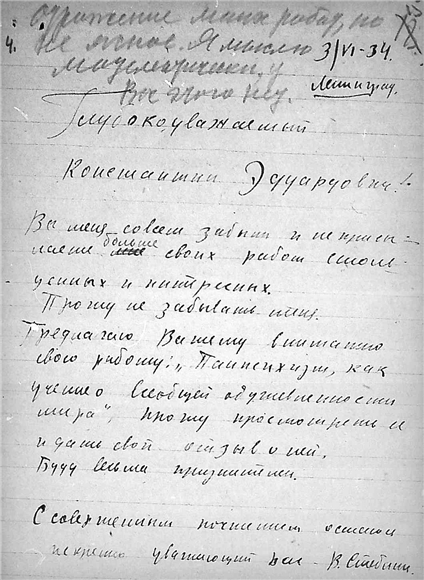 отражение моих работ, но
4. не ясное. Я мыслю
математически. У
Вас этого нет.
3/VI-34.
Ленинград.
Глубокоуважаемый
Константин Эдуардович!
Вы меня совсем забыли и не присы-
лаете больше своих работ столь
ценных и интересных.
Прошу не забывать меня.
Предлагаю Вашему вниманию
свою работу: „Панпсихизм, как
учение о всеобщей одушевленности
мира“, прошу просмотреть ее
и дать свой отзыв о ней.
Буду весьма признателен.
С совершенным почтением остаюсь
искренно уважающий Вас – В.